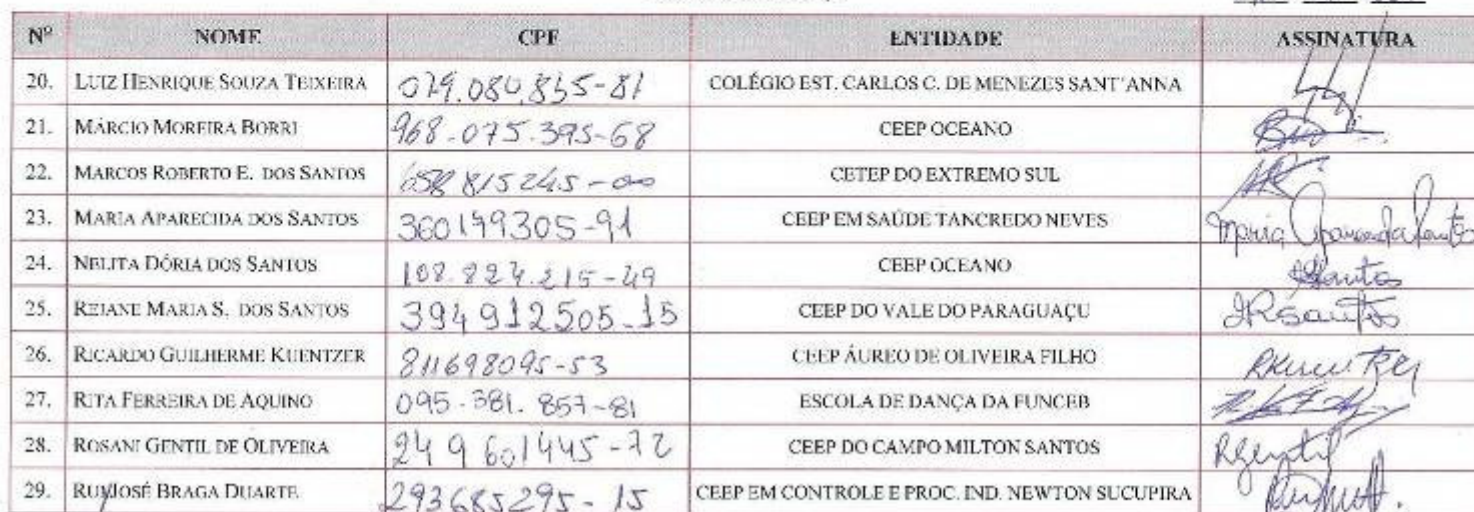 Nº NOME CPF ENTIDADE ASSINATURA
20. LUIZ HENRIQUE SOUZA TEIXEIRA COLÉGIO EST. CARLOS C. DE MENEZES SANT'ANNA
21. MÁRCIO MOREIRA BORRI 968-075.395-68 CEEP OCEANO
22. MARCOS ROBERTO E. DOS SANTOS 658 815245-00 CETEP DO EXTREMO SUL
23. MARIA APARECIDA DOS SANTOS CEEP EM SAÚDE TANCREDO NEVES Maria Aparecida Santos
24. NELITA DÓRIA DOS SANTOS CEEP OCEANO
25. REJANE MARIA S. DOS SANTOS 394912505-15 CEEP DO VALE DO PARAGUAÇU
26. RICARDO GUILHERME KUENTZER 811698095-53 CEEP ÁUREO DE OLIVEIRA FILHO
27. RITA FERREIRA DE AQUINO 095-381.857-81 ESCOLA DE DANÇA DA FUNCEB
28. ROSANI GENTIL DE OLIVEIRA 249601445-72 CEEP DO CAMPO MILTON SANTOS RGentil
29. RUI JOSÉ BRAGA DUARTE 293685295-15 CEEP EM CONTROLE E PROC. IND. NEWTON SUCUPIRA